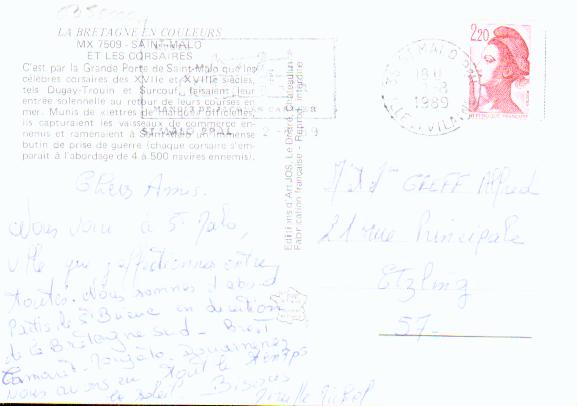 LA BRETAGNE EN COULEURS
MX 7509 - SAINT-MALO
ET LES CORSAIRES
C'est par la Grande Porte de Saint-Malo que les
célèbres corsaires des XVIIe et XVIIIe siècles,
tels Dugay-Trouin et Surcouf, faisaient leur
entrée solennelle au retour de leurs courses en
mer. Munis de «lettres de marque» officielles,
ils capturaient les vaisseaux de commerce en-
nemis et ramenaient à Saint-Malo un immense
butin de prise de guerre (chaque corsaire s'em-
parait à l'abordage de 4 à 500 navires ennemis).
ST MALO PPAL
Editions d'Art JOS, Le Doaré, Châteaulin
Fabrication française - Reprod. interdite
ST MALO PPAL
18 H
1989
ILLE & VILAINE
2,20
REPUBLIQUE FRANCAISE
Chers Amis.
Nous voici à St Malo,
ville que j'affectionne entre
toutes. Nous sommes d'abord
partis de St Brieuc en direction
de la Bretagne sud - Brest
Camaret - Douarnenez
Nous avons eu tout le temps
le soleil Bisous
GREFF Alfred
21 rue Principale
Etzling
57-